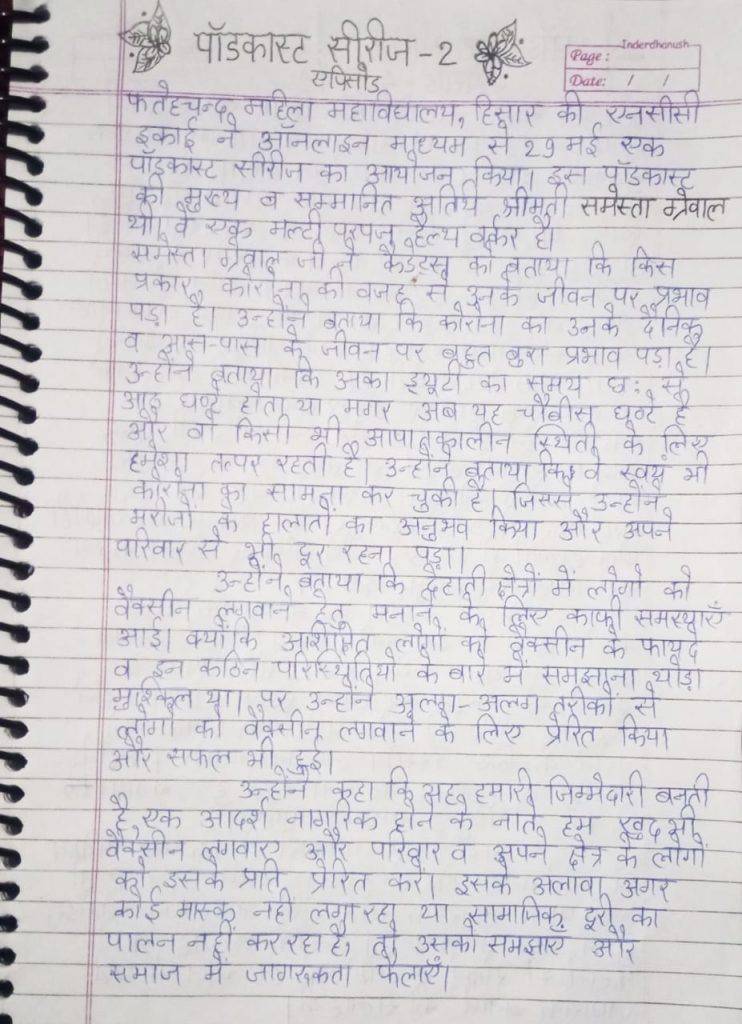 पॉडकास्ट सीरीज - 2
एपिसोड
Inderdhanush
Page :
Date: / /
फतेहचन्द महिला महाविधालय, हिसार की एनसीसी
इकाई ने ऑनलाइन माध्यम से 29 मई एक
पॉडकास्ट सीरीज का आयोजन किया। इस पॉडकास्ट
की मुख्य व सम्मानित अतिथि श्रीमती समेस्ता ग्रेवाल
थी। वे एक मल्टी परपज हेल्थ वर्कर है।
समेस्ता ग्रेवाल जी ने कैडेट्स को बताया कि किस
प्रकार कोरोना की वजह से उनके जीवन पर प्रभाव
पड़ा है। उन्होंने बताया कि कोरोना का उनके दैनिक
व आस-पास के जीवन पर बहुत बुरा प्रभाव पड़ा है।
उन्होंने बताया कि उनका ड्यूटी का समय छ: से
आठ घण्टे होता था मगर अब यह चौबीस घण्टे है
और वो किसी भी आपातकालीन स्थिती के लिए
हमेशा तत्पर रहती है। उन्होंने बताया कि वे स्वयं भी
कोरोना का सामना कर चुकी है। जिससे उन्होंने
मरीजों के हालातों का अनुभव किया और अपने
परिवार से भी दूर रहना पड़ा।
उन्होंने बताया कि देहाती क्षेत्रों में लोगो को
वैक्सीन लगवाने हेतु मनाने के लिए काफी समस्याएँ
आई। क्योंकि अशिक्षित लोगों को वैक्सीन के फायदे
व इन कठिन परिस्थितियों के बारे में समझाना थोड़ा
मुश्किल था। पर उन्होंने अलग-अलग तरीकों से
लोगो को वैक्सीन लगवाने के लिए प्रेरित किया
और सफल भी हुई।
उन्होंने कहा कि यह हमारी जिम्मेदारी बनती
है, एक आदर्श नागरिक होने के नाते हम खुद भी
वैक्सीन लगवाए और परिवार व अपने क्षेत्र के लोगों
को इसके प्रति प्रेरित करें। इसके अलावा अगर
कोई मास्क नहीं लगा रहा या सामाजिक दूरी का
पालन नहीं कर रहा है, तो उसको समझाए और
समाज में जागरूकता फैलाएँ।